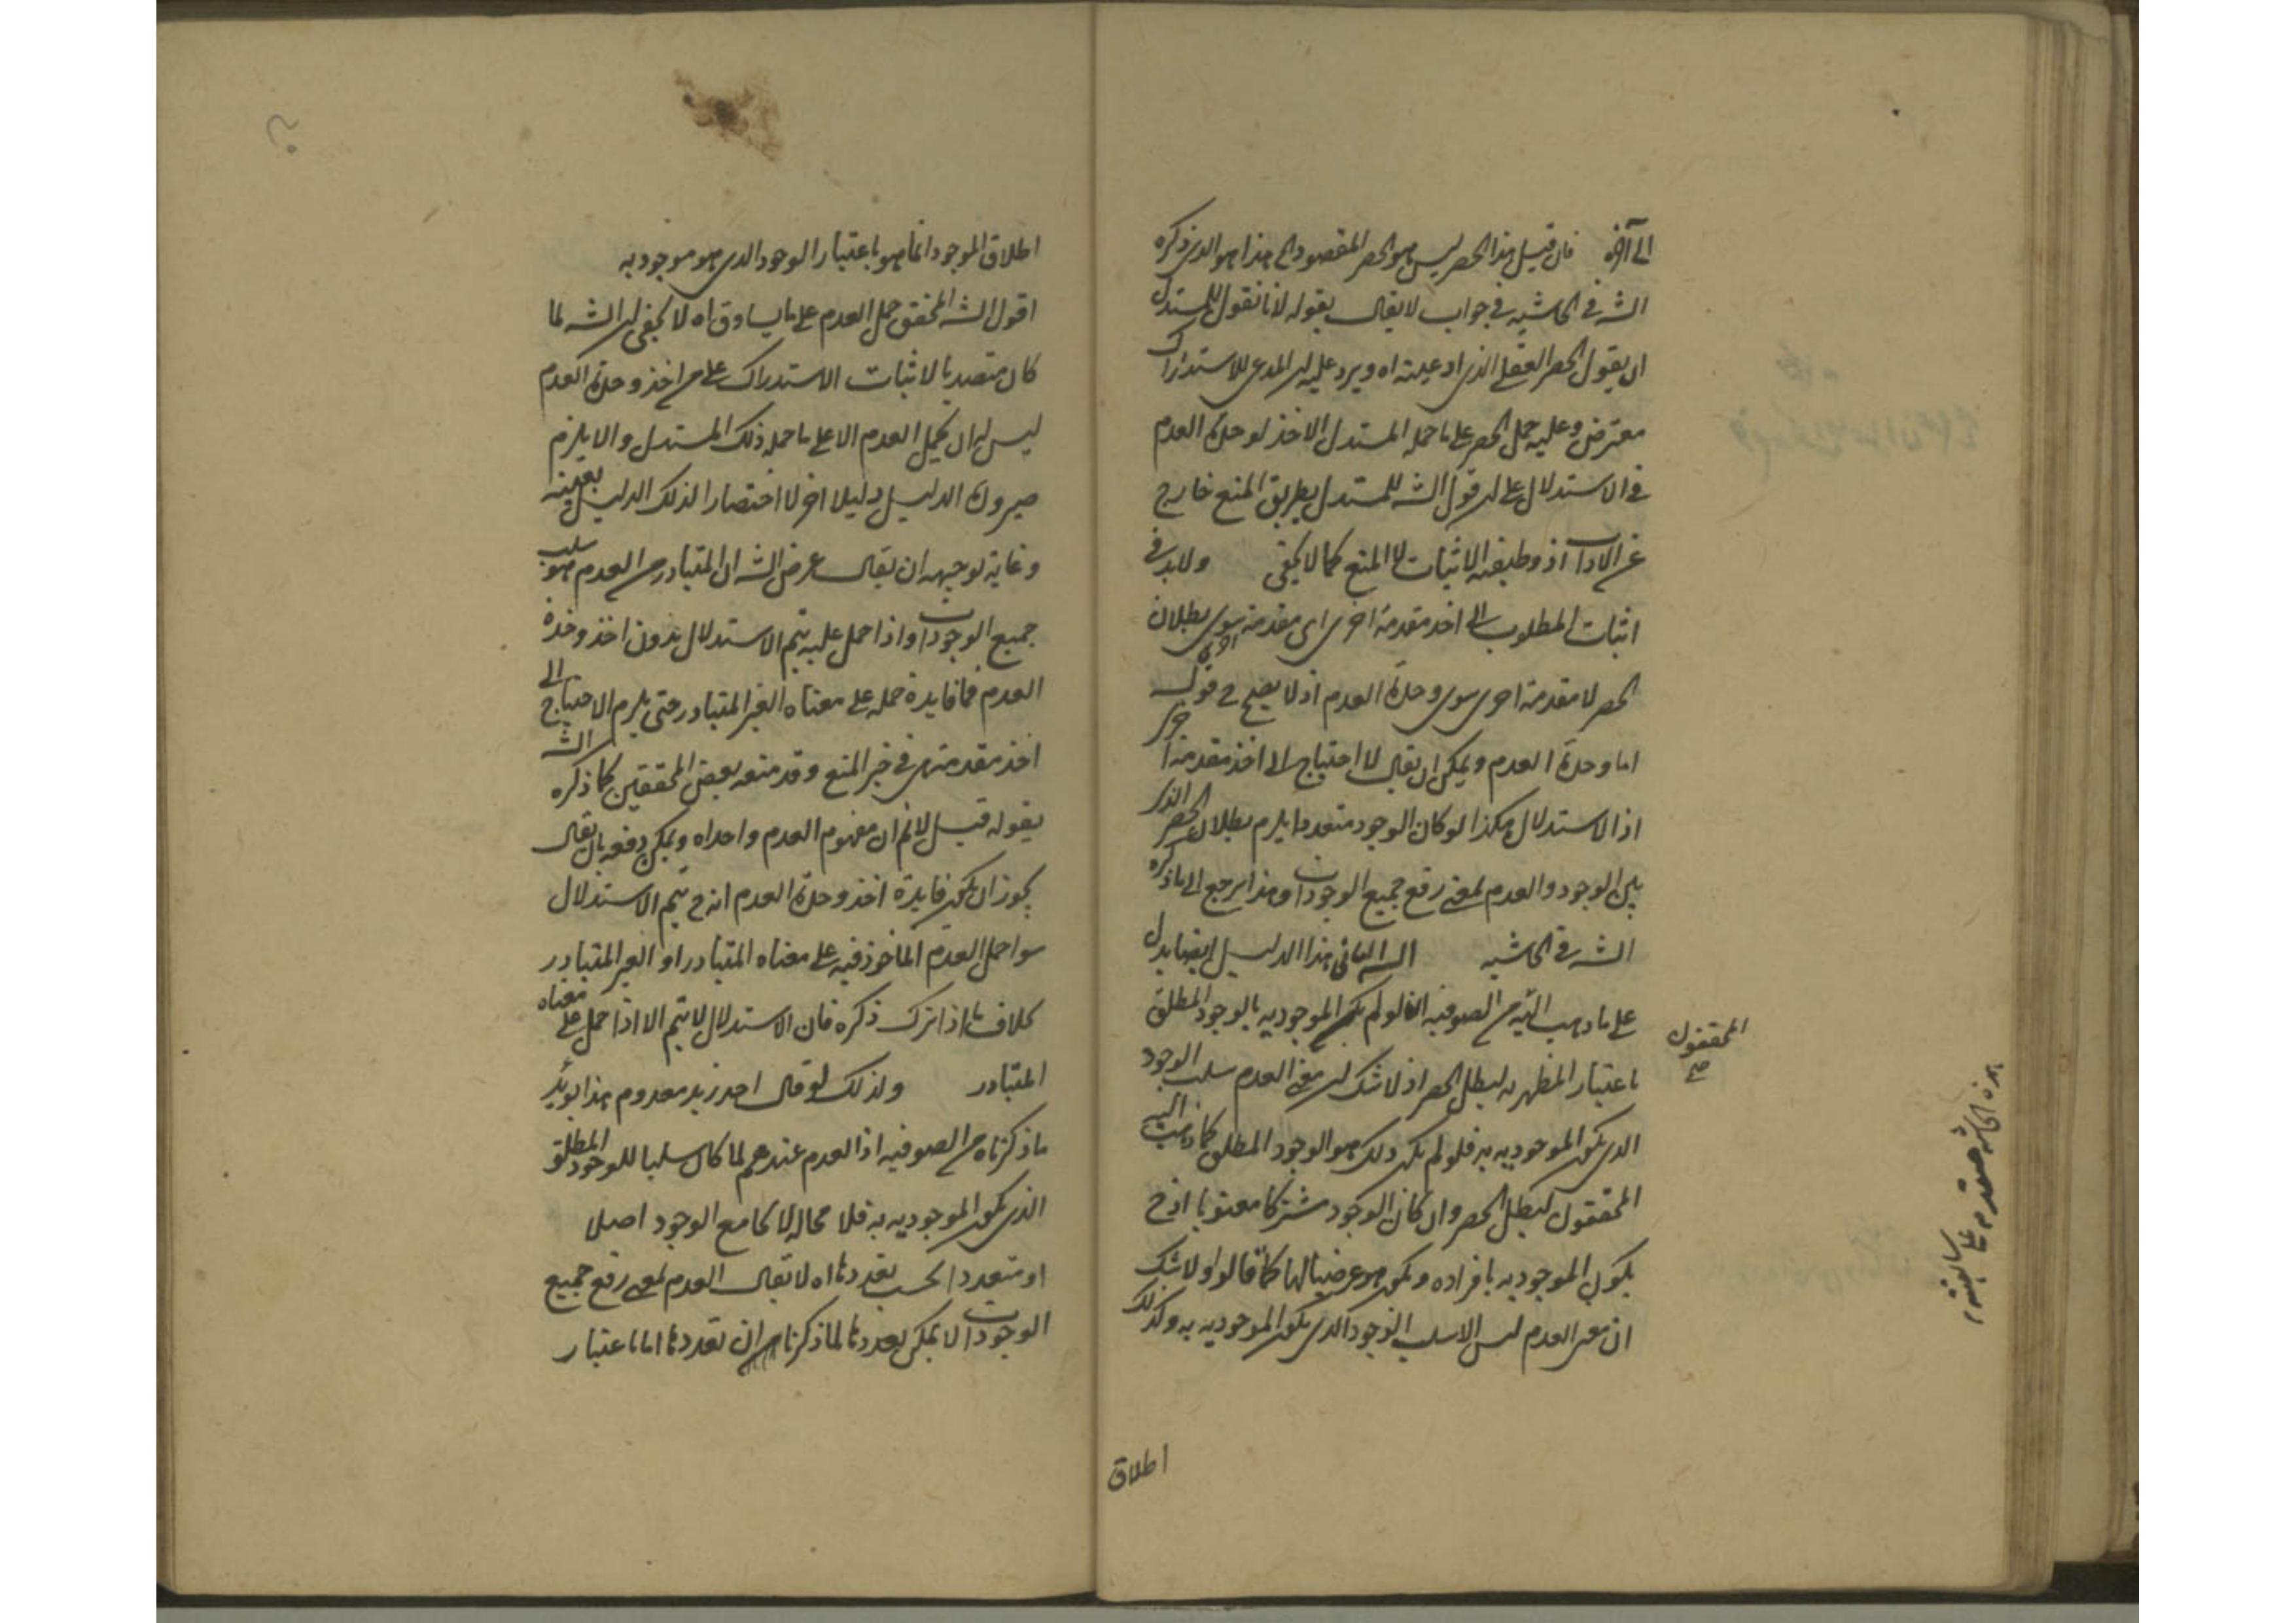 الى آخره فان قيل هذا الحصر ليس هو الحصر المقصود الى هذا هو الذى ذكره
الشه فى الحاشيه فى جواب لا يقال بقوله لانا نقول للمستدل
ان يقول الحصر العقلى الذى ادعيته اه ويرد عليه ان المدعى للاستدراك
معترض وعليه حمل الحصر على ما حمله المستدل الاخذ لوحدة العدم
فى الاستدلال على ان قول الشه للمستدل بطريق المنع خارج
عن الاداب اذ وظيفته الاثبات لا المنع كما لا يخفى ولا بد فى
اثبات المطلوب الى اخذ مقدمة اخرى اى مقدمة اخرى سوى بطلان
الحصر لا مقدمة اخرى سوى وحدة العدم اذ لا يصح ح قوله
اما وحدة العدم ويمكن ان يقال لا احتياج الى اخذ مقدمة اخرى
اذ الاستدلال هكذا لو كان الوجود متعددا يلزم بطلان الحصر الذى
بين الوجود والعدم بمعنى رفع جميع الوجودات وهذا يرجع الى ما ذكره
الشه فى الحاشيه الثانى هذا الدليل ايضا يدل
على ما ذهب اليه من الصوفيه اذ لو لم يكن الموجوديه بالوجود المطلق
المحققون صح
باعتبار المظهريه لبطل الحصر اذ لا شك ان معنى العدم سلب الوجود
الذى يكون الموجوديه به فلو لم يكن ذلك هو الوجود المطلق كما ذهب اليه
المحققون لبطل الحصر وان كان الوجود مشتركا معنويا اذ ح
يكون الموجوديه بافراده ويكون هو عرضيا لها كما قالوا ولا شك
ان معنى العدم ليس الا سلب الوجود الذى يكون الموجوديه به وكذلك
اطلاق
هذه الحاشيه مقدم على سابقته
اطلاق الموجود انما هو باعتبار الوجود الذى هو موجود به
اقول الشه المحقق حمل العدم على ما يساوق اه لا يخفى ان الشه لما
كان متصديا لاثبات الاستدراك على من اخذ وحدة العدم
ليس له ان يحمل العدم الا على ما حمله ذلك المستدل والا يلزم
صيرورة الدليل دليلا اخر لا اختصارا لذلك الدليل بعينه
وغاية توجيهه ان يقال غرض الشه ان المتبادر من العدم هو سلب
جميع الوجودات واذا حمل عليه يتم الاستدلال بدون اخذ وحدة
العدم فما فايدة حمله على معناه الغير المتبادر حتى يلزم الاحتياج الى
اخذ مقدمة هى فى خير المنع وقد منعه بعض المحققين كما ذكره الشه
بقوله قيل لا نم ان مفهوم العدم واحد اه ويمكن دفعه بان يقال
يجوز ان يكون فايدة اخذ وحدة العدم انه ح يتم الاستدلال
سوا حمل العدم الماخوذ فيه على معناه المتبادر او الغير المتبادر
بخلاف ما اذا ترك ذكره فان الاستدلال لا يتم الا اذا حمل على معناه
المتبادر ولذلك لو قال احد زيد معدوم هذا يويد
ما ذكرناه من الصوفيه اذ العدم عندهم لما كان سلبا للوجود المطلق
الذى يكون الموجوديه به فلا محالة لا يجامع الوجود اصلا
او متعددا بحسب تعددها اه لا يقال العدم بمعنى رفع جميع
الوجودات لا يمكن تعددها لما ذكرنا من ان تعددها اما باعتبار